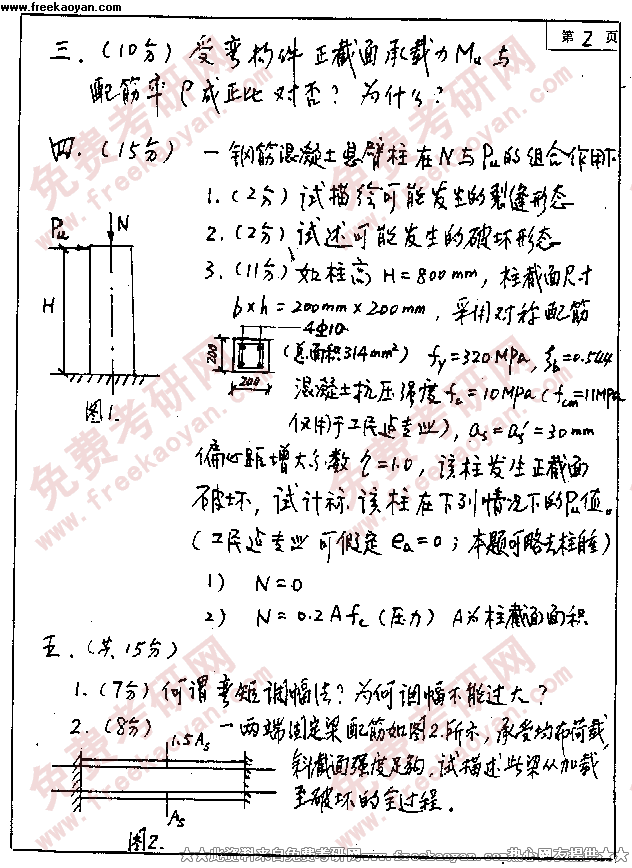 www.freekaoyan.com
第 2 页
三.(10分) 受弯构件正截面承载力Mu与
配筋率ρ成正比对否?为什么?
四.(15分) 一钢筋混凝土悬臂柱在N与Pu的组合作用下
1.(2分)试描绘可能发生的裂缝形态
2.(2分)试述可能发生的破坏形态
3.(11分)如柱高H=800mm,柱截面尺寸
b×h=200mm×200mm,采用对称配筋
Pu
N
H
图1.
4Φ10
200
200
(总面积314mm²) fy=320MPa, ξb=0.544
混凝土抗压强度fc=10MPa(fcm=11MPa
仅用于工民建专业), as=as'=30mm
偏心距增大系数η=1.0,该柱发生正截面
破坏,试计标该柱在下列情况下的Pu值。
(工民建专业可假定ea=0;本题可略去柱自重)
1) N=0
2) N=0.2Afc(压力) A为柱截面面积
五.(共15分)
1.(7分)何谓弯矩调幅法?为何调幅不能过大?
2.(8分) 一两端固定梁配筋如图2.所示,承受均布荷载,
斜截面强度足够,试描述此梁从加载
至破坏的全过程.
1.5As
As
图2.
免费考研网
www.freekaoyan.com
★★此资料来自免费考研网www.freekaoyan.com热心网友提供★★